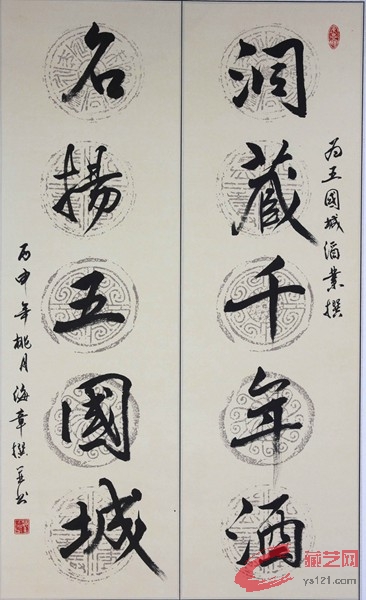 为五國城酒業撰
洞藏千年酒
名揚五國城
丙申年桃月海章撰并书
藏艺网
ys121.com